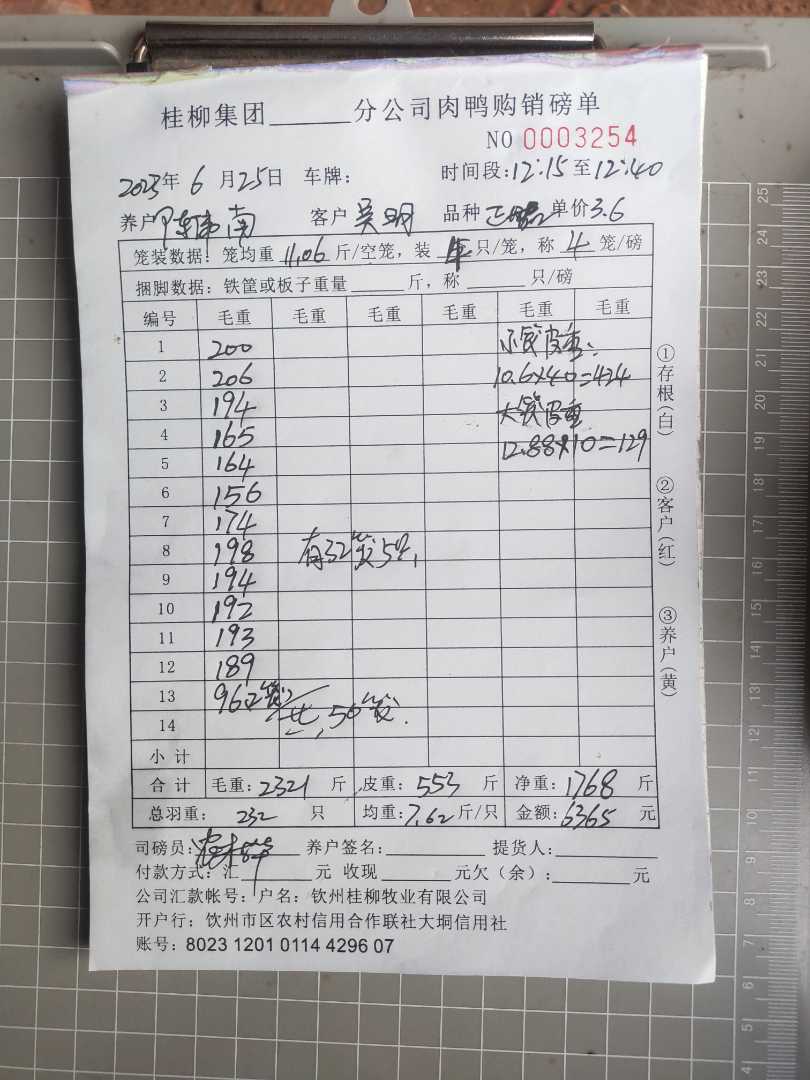 桂柳集团______分公司肉鸭购销磅单
NO 0003254
2023年 6 月25日 车牌: 时间段:12:15至12:40
养户 南 客户 吴明 品种 单价3.6
笼装数据: 笼均重 11.06 斤/空笼, 装 只/笼, 称 4 笼/磅
捆脚数据: 铁筐或板子重量______斤, 称______只/磅
编号 毛重 毛重 毛重 毛重 毛重 毛重
1 200 小笼皮重:
2 206 10.6×40=424
3 194 大笼皮重
4 165 12.88×10=129
5 164
6 156
7 174
8 198 有32笼5只,
9 194
10 192
11 193
12 189
13 96 2笼 共, 50笼.
14
小计
合计 毛重:2321 斤 皮重: 553 斤 净重:1768 斤
总羽重: 232 只 均重:7.62斤/只 金额:6365 元
司磅员: 养户签名:______ 提货人:______
付款方式:汇______元 收现______元欠(余):______元
公司汇款帐号: 户名: 钦州桂柳牧业有限公司
开户行: 钦州市区农村信用合作联社大垌信用社
账号: 8023 1201 0114 4296 07
①存根(白)
②客户(红)
③养户(黄)
25
24
23
22
21
20
19
18
17
16
15
14
13
12
11
10
9
8
7
6
5
4